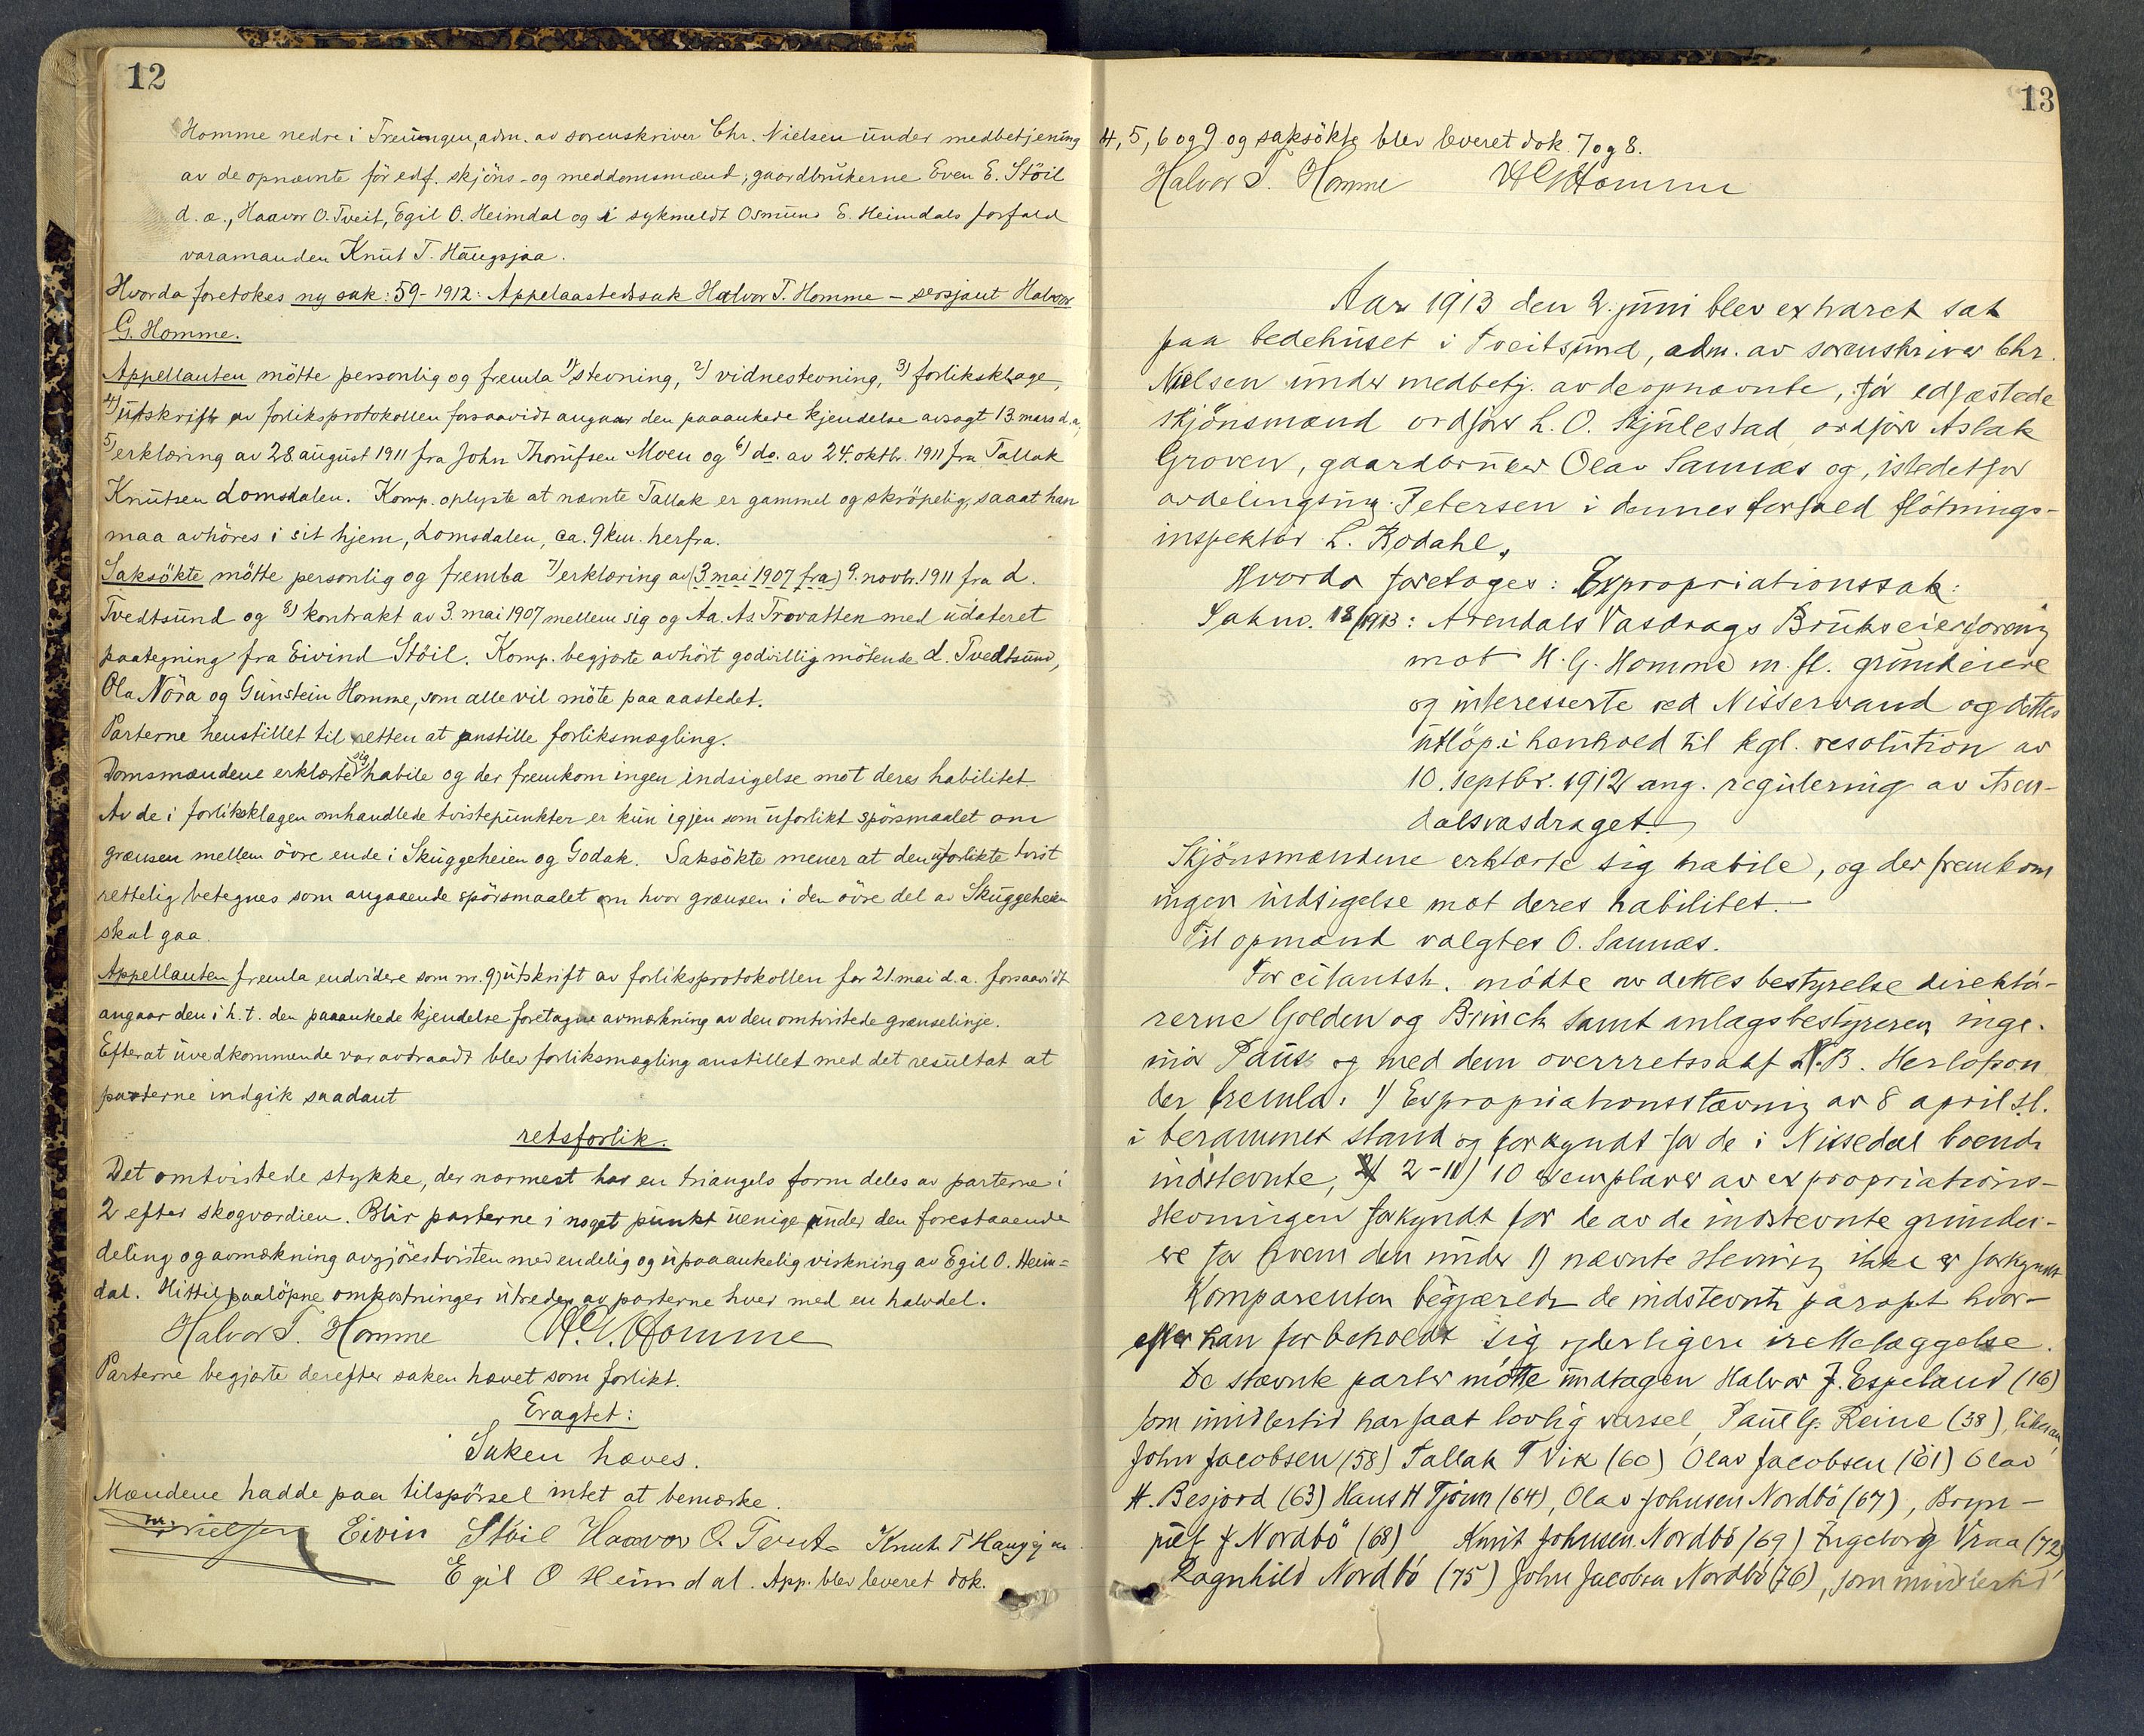 12
Homme nedre i Treungen, adm. av sorenskriver Chr. Nielsen under medbetjening
av de opnævnte för edf. skjöns- og meddomsmænd; gaardbrukerne Even E. Stöil
d. æ., Haavor O. Tveit, Egil O. Heimdal og i sykmeldt Osmund E. Heimdals forfald
varamanden Knut T. Haugsjaa.
Hvorda foretokes ny sak: 59-1912: Appelaastedssak Halvor T. Homme - sersjant Halvor
G. Homme.
Appellanten mötte personlig og fremla 1) stevning, 2) vidnestevning, 3) forliksklage,
4) utskrift av forliksprotokollen forsaavidt angaar den paaankede kjendelse avsagt 13. mars d.a.,
5) erklæring av 28. august 1911 fra John Thorufsen Moen og 6) do. av 24. oktbr. 1911 fra Tallak
Knutsen Lomsdalen. Komp. oplyste at nævnte Tallak er gammel og skröpelig, saaat han
maa avhöres i sit hjem, Lomsdalen, ca. 9 km. herfra.
Saksökte mötte personlig og fremla 7) erklæring av (3 mai 1907 fra) 9. novbr. 1911 fra d.
Tvedtsund og 8) kontrakt av 3. mai 1907 mellem sig og Aa. As. Trovatten med udateret
paategning fra Eivind Stöil. Komp. begjærte avhört godvillig mötende d. Tvedtsund,
Ola Nöra og Gunstein Homme, som alle vil möte paa aastedet.
Parterne henstillet til retten at anstille forliksmægling.
Domsmændene erklærte sig habile og der fremkom ingen indsigelse mot deres habilitet.
Av de i forliksklagen omhandlede tvistepunkter er kun igjen som uforlikt spörsmaalet om
grænsen mellem övre ende i Skuggeheien og Godak. Saksökte mener at den uforlikte tvist
rettelig betegnes som angaaende spörsmaalet om hvor grænsen i den övre del av Skuggeheien
skal gaa.
Appellanten fremla endvidere som nr. 9) utskrift av forliksprotokollen for 21. mai d.a. forsaavidt
angaar den i h. t. den paaankede kjendelse foretagne avmerkning av den omtvistede grænselinje.
Efterat uvedkommende var avtraadt blev forliksmægling anstillet med det resultat at
parterne indgik saadant
retsforlik.
Det omtvistede stykke, der nærmest har en triangels form deles av parterne i
2 efter skogværdien. Blir parterne i noget punkt uenige under den forestaaende
deling og avmerkning avgjöres tvisten med endelig og upaaankelig virkning av Egil O. Heim=
dal. Hittil paalöpne omkostninger utredes av parterne hver med en halvdel.
Halvor T. Homme H. G. Homme
Parterne begjærte derefter saken hævet som forlikt.
Eragtet:
Saken hæves.
Mændene hadde paa tilspörsel intet at bemerke.
Nielsen Eivin Stöil Haavor O. Tveit Knut T Haugsjaa
Egil O Heimdal. App. blev leveret dok.
13
4, 5, 6 og 9 og saksökte blev leveret dok. 7 og 8.
Halvor T. Homme H G Homme
Aar 1913 den 2. juni blev extraret sat
paa bedehuset i Tveitsund, adm. av sorenskriver Chr.
Nielsen under medbetj. av de opnævnte, för edfæstede
skjönsmænd ordförer L. O. Skjulestad, ordförer Aslak
Groven, gaardbruker Olav Sannæs og, istedetfor
avdelingsing. Petersen i dennes forfald flötnings-
inspektör L. Rodahl.
Hvorda foretoges: Expropriationssak:
Sak no. 18/1913: Arendals Vasdrags Brukseierforening
mot H. G. Homme m. fl. grundeiere
og interesserte ved Nisservand og dettes
utlöp i henhold til kgl. resolution av
10. septbr. 1912 ang. regulering av Aren-
dalsvasdraget.
Skjönsmændene erklærte sig habile, og der fremkom
ingen indsigelse mot deres habilitet.
Til opmand valgtes O. Sannæs.
For citantsk. mödte av dettes bestyrelse direktö-
rerne Golden og Brinch samt anlægsbestyreren inge-
niör Paus og med dem overretssakf N. B. Herlofson
der fremla: 1) Expropriationsstævning av 8 april sl.
i berammet stand og forkyndt for de i Nissedal boende
indstevnte, 2-11) 10 exemplarer av expropriations-
stevningen forkyndt for de av de indstevnte grundei-
ere for hvem den under 1) nævnte stevning ikke er forkyndt
Komparenten begjærede de indstevnte paropt hvor-
efter han forbeholdt sig yderligere irettelæggelse.
De stævnte parter mötte undtagen Halvor J. Espeland (16)
som imidlertid har faat lovlig varsel, Paul G. Reine (38), likesaa,
John Jacobsen (58) Tallak T Vik (60) Olav Jacobsen (61) Olav
H. Besjord (63) Hans H Tjönn (64), Olav Johnsen Nordbö (67), Bryn-
julf J Nordbö (68) Knut Johnsen Nordbö (69) Ingeborg Vraa (72)
Ragnhild Nordbö (75) John Jacobsen Nordbö (76), som imidlertid